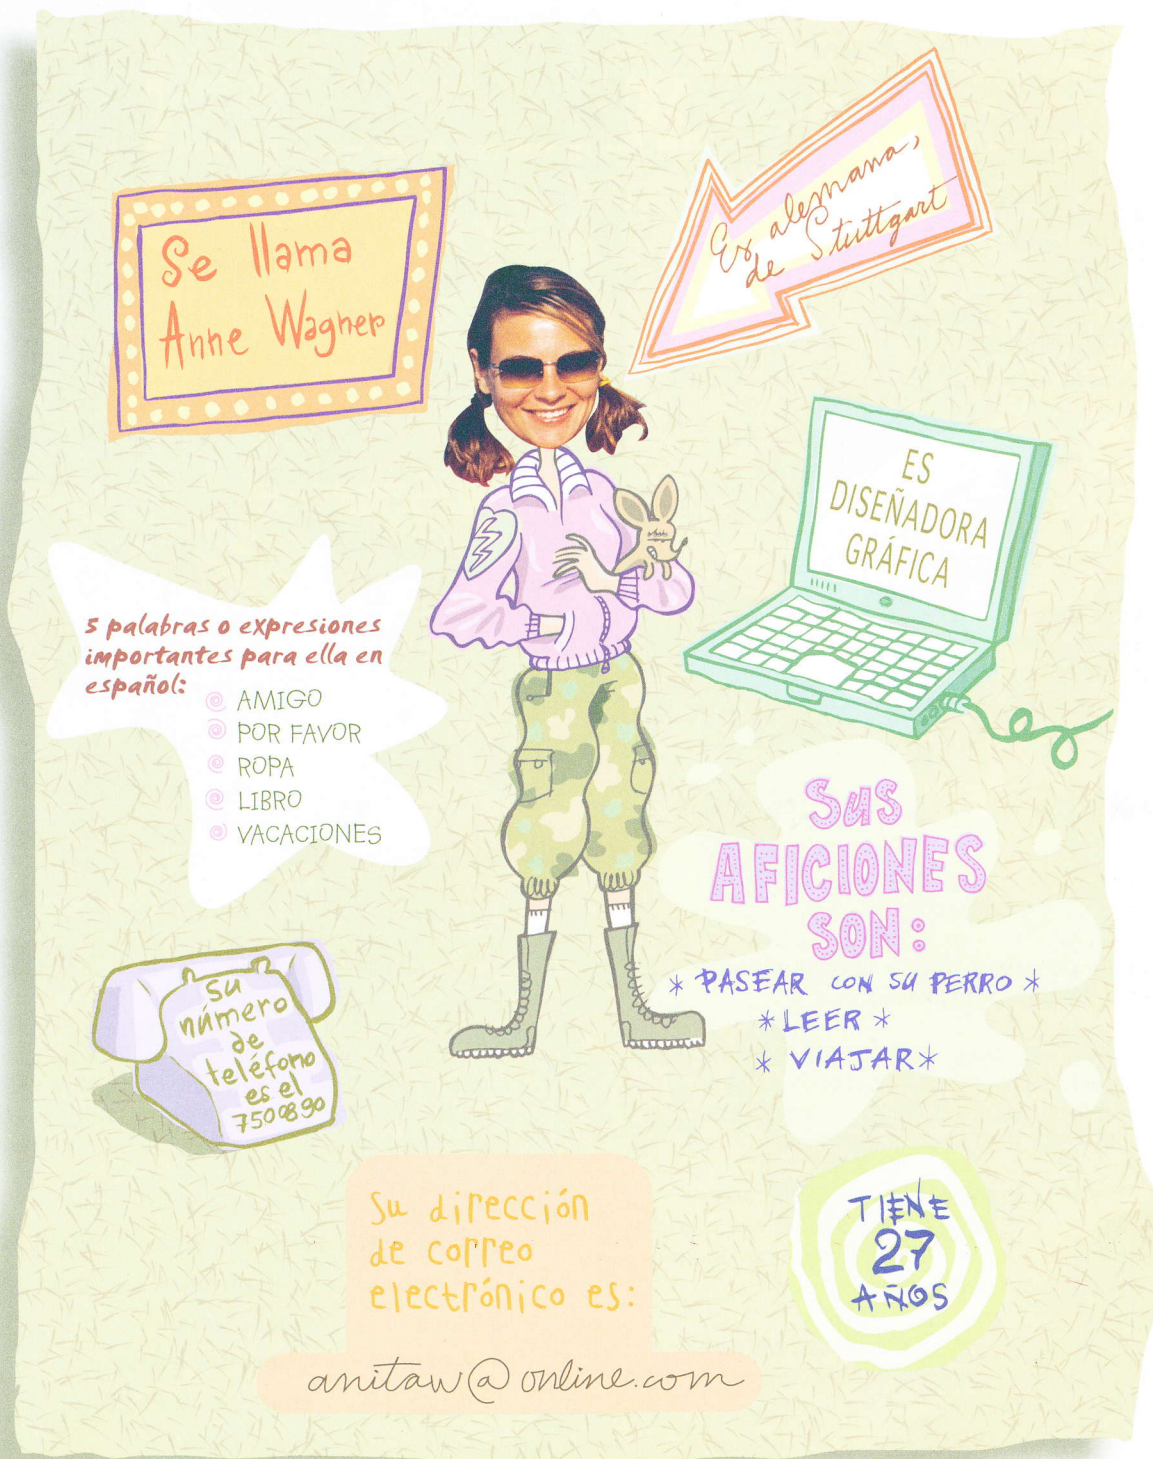 Se llama
Anne Wagner
Es alemana,
de Stuttgart
ES
DISEÑADORA
GRÁFICA
5 palabras o expresiones
importantes para ella en
español:
AMIGO
POR FAVOR
ROPA
LIBRO
VACACIONES
Sus
AFICIONES
SON:
* PASEAR CON SU PERRO *
* LEER *
* VIAJAR *
Su
número
de
teléfono
es el
7500890
Su dirección
de correo
electrónico es:
anitaw@online.com
TIENE
27
AÑOS